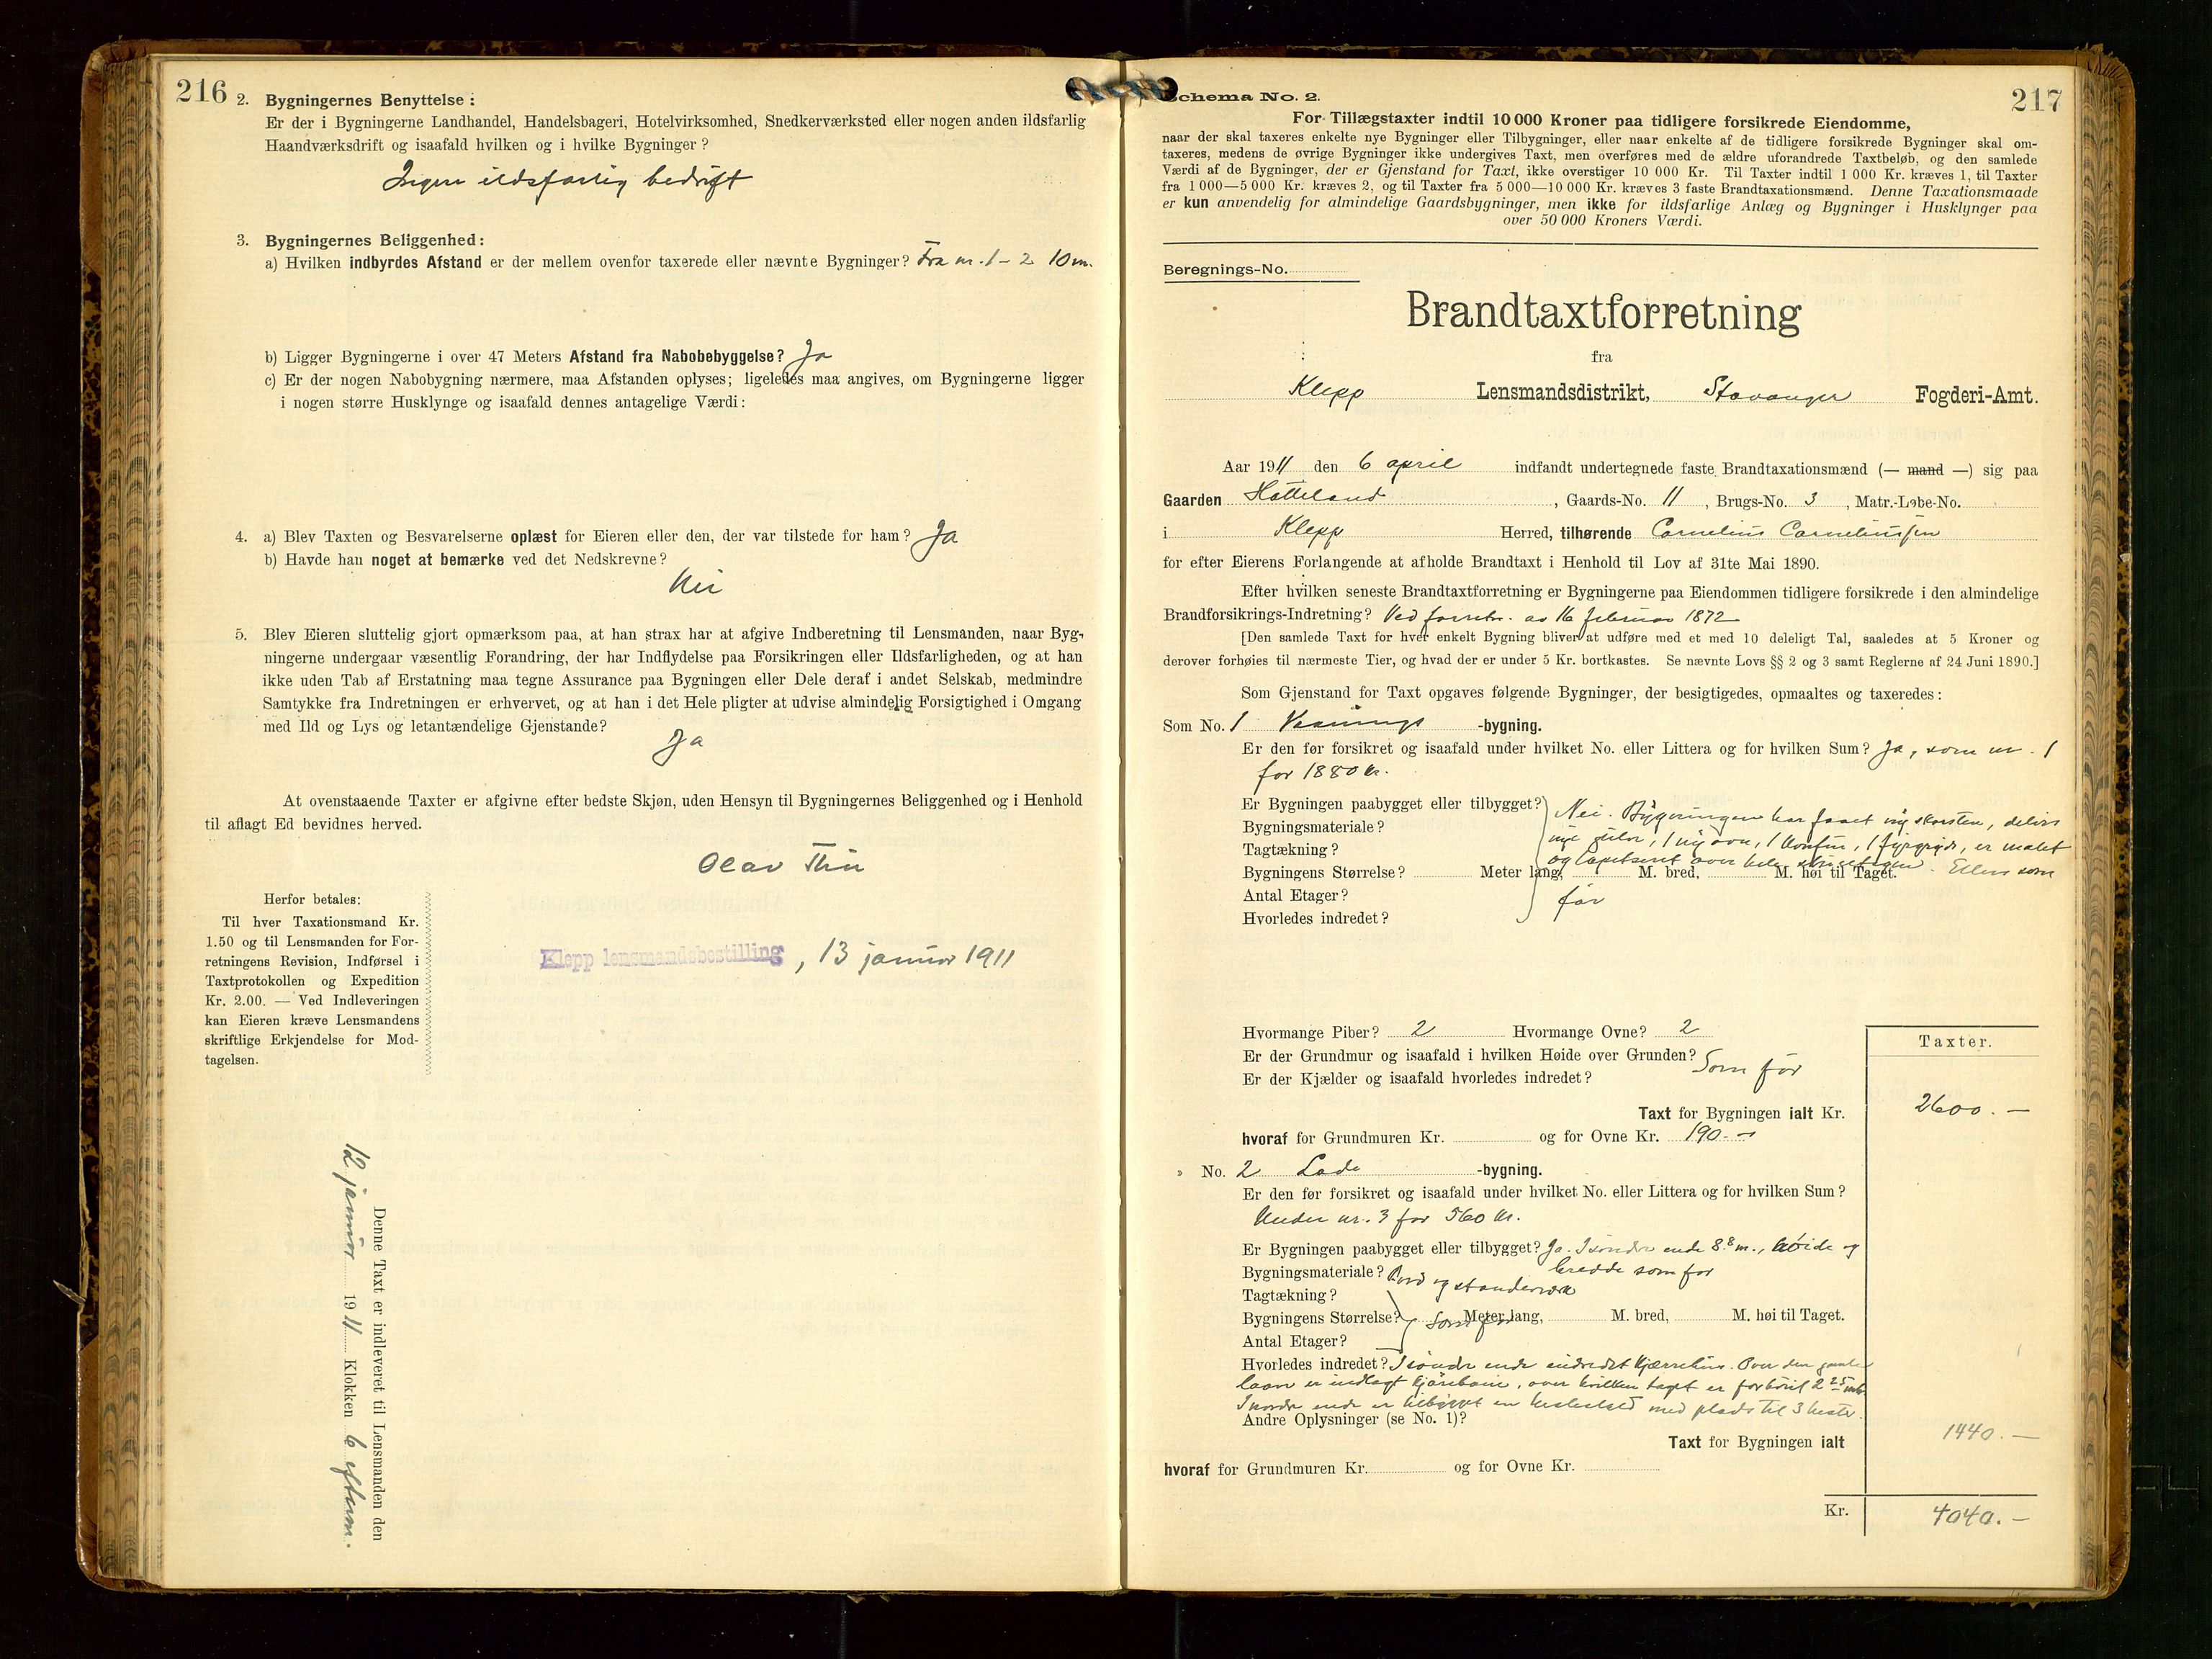 216
2. Bygningernes Benyttelse:
Er der i Bygningerne Landhandel, Handelsbageri, Hotelvirksomhed, Snedkerværksted eller nogen anden ildsfarlig
Haandværksdrift og isaafald hvilken og i hvilke Bygninger?
Ingen ildsfarlig bedrift
3. Bygningernes Beliggenhed:
a) Hvilken indbyrdes Afstand er der mellem ovenfor taxerede eller nævnte Bygninger? Fra nr. 1 - 2 10 m.
b) Ligger Bygningerne i over 47 Meters Afstand fra Nabobebyggelse? Ja
c) Er der nogen Nabobygning nærmere, maa Afstanden oplyses; ligeledes maa angives, om Bygningerne ligger
i nogen større Husklynge og isaafald dennes antagelige Værdi:
4. a) Blev Taxten og Besvarelserne oplæst for Eieren eller den, der var tilstede for ham? Ja
b) Havde han noget at bemærke ved det Nedskrevne?
Nei
5. Blev Eieren sluttelig gjort opmærksom paa, at han strax har at afgive Indberetning til Lensmanden, naar Byg-
ningerne undergaar væsentlig Forandring, der har Indflydelse paa Forsikringen eller Ildsfarligheden, og at han
ikke uden Tab af Erstatning maa tegne Assurance paa Bygningen eller Dele deraf i andet Selskab, medmindre
Samtykke fra Indretningen er erhvervet, og at han i det Hele pligter at udvise almindelig Forsigtighed i Omgang
med Ild og Lys og letantændelige Gjenstande?
Ja
At ovenstaaende Taxter er afgivne efter bedste Skjøn, uden Hensyn til Bygningernes Beliggenhed og i Henhold
til aflagt Ed bevidnes herved.
Olav Thu
Herfor betales:
Til hver Taxationsmand Kr.
1.50 og til Lensmanden for For-
retningens Revision, Indførsel i
Taxtprotokollen og Expedition
Kr. 2.00. — Ved Indleveringen
kan Eieren kræve Lensmandens
skriftlige Erkjendelse for Mod-
tagelsen.
Klepp lensmandsbestilling, 13 januar 1911
Denne Taxt er indleveret til Lensmanden den
12 januar 1911 Klokken 6 efterm.
217
Schema No. 2.
For Tillægstaxter indtil 10 000 Kroner paa tidligere forsikrede Eiendomme,
naar der skal taxeres enkelte nye Bygninger eller Tilbygninger, eller naar enkelte af de tidligere forsikrede Bygninger skal om-
taxeres, medens de øvrige Bygninger ikke undergives Taxt, men overføres med de ældre uforandrede Taxtbeløb, og den samlede
Værdi af de Bygninger, der er Gjenstand for Taxt, ikke overstiger 10 000 Kr. Til Taxter indtil 1 000 Kr. kræves 1, til Taxter
fra 1 000—5 000 Kr. kræves 2, og til Taxter fra 5 000—10 000 Kr. kræves 3 faste Brandtaxationsmænd. Denne Taxationsmaade
er kun anvendelig for almindelige Gaardsbygninger, men ikke for ildsfarlige Anlæg og Bygninger i Husklynger paa
over 50 000 Kroners Værdi.
Beregnings-No.
Brandtaxtforretning
fra
Klepp Lensmandsdistrikt, Stavanger Fogderi-Amt.
Aar 1911 den 6 april indfandt undertegnede faste Brandtaxationsmænd (— mand —) sig paa
Gaarden Hatteland, Gaards-No. 11, Brugs-No. 3, Matr.-Løbe-No.
i Klepp Herred, tilhørende Cornelius Corneliussen
for efter Eierens Forlangende at afholde Brandtaxt i Henhold til Lov af 31te Mai 1890.
Efter hvilken seneste Brandtaxtforretning er Bygningerne paa Eiendommen tidligere forsikrede i den almindelige
Brandforsikrings-Indretning? Ved forretn. av 16 februar 1872
[Den samlede Taxt for hver enkelt Bygning bliver at udføre med et med 10 deleligt Tal, saaledes at 5 Kroner og
derover forhøies til nærmeste Tier, og hvad der er under 5 Kr. bortkastes. Se nævnte Lovs §§ 2 og 3 samt Reglerne af 24 Juni 1890.]
Som Gjenstand for Taxt opgaves følgende Bygninger, der besigtigedes, opmaaltes og taxeredes:
Som No. 1 Vaanings -bygning.
Er den før forsikret og isaafald under hvilket No. eller Littera og for hvilken Sum? Ja, som nr. 1
for 1880 kr.
Er Bygningen paabygget eller tilbygget? Nei. Bygningen har faaet ny skorsten, delvis
Bygningsmateriale? nye gulve, 1 ny ovn, 1 komfur, 1 fyrgryde, er malet
Tagtækning? og tapetseret over hele
Bygningens Størrelse? Meter lang, M. bred, M. høi til Taget. Ellers som
Antal Etager? før
Hvorledes indredet?
Hvormange Piber? 2 Hvormange Ovne? 2
Taxter.
Er der Grundmur og isaafald i hvilken Høide over Grunden? Som før
Er der Kjælder og isaafald hvorledes indredet?
Taxt for Bygningen ialt Kr. 2600.—
hvoraf for Grundmuren Kr. og for Ovne Kr. 190.—
» No. 2 Lade -bygning.
Er den før forsikret og isaafald under hvilket No. eller Littera og for hvilken Sum?
Under nr. 3 for 560 kr.
Er Bygningen paabygget eller tilbygget? Ja. I søndre ende 8.8 m., høide og
bredde som før
Bygningsmateriale? Bord og standerverk
Tagtækning?
Bygningens Størrelse? Som før Meter lang, M. bred, M. høi til Taget.
Antal Etager?
Hvorledes indredet? I søndre ende indredet kjærrehus. Over den gamle
laave er indlagt kjørebane, over hvilken taget er forhøiet 2.25 mtr.
I nordre ende er tilbygget en hestestald med plads til 3 heste.
Andre Oplysninger (se No. 1)?
Taxt for Bygningen ialt 1440.—
hvoraf for Grundmuren Kr. og for Ovne Kr.
Kr. 4040.—